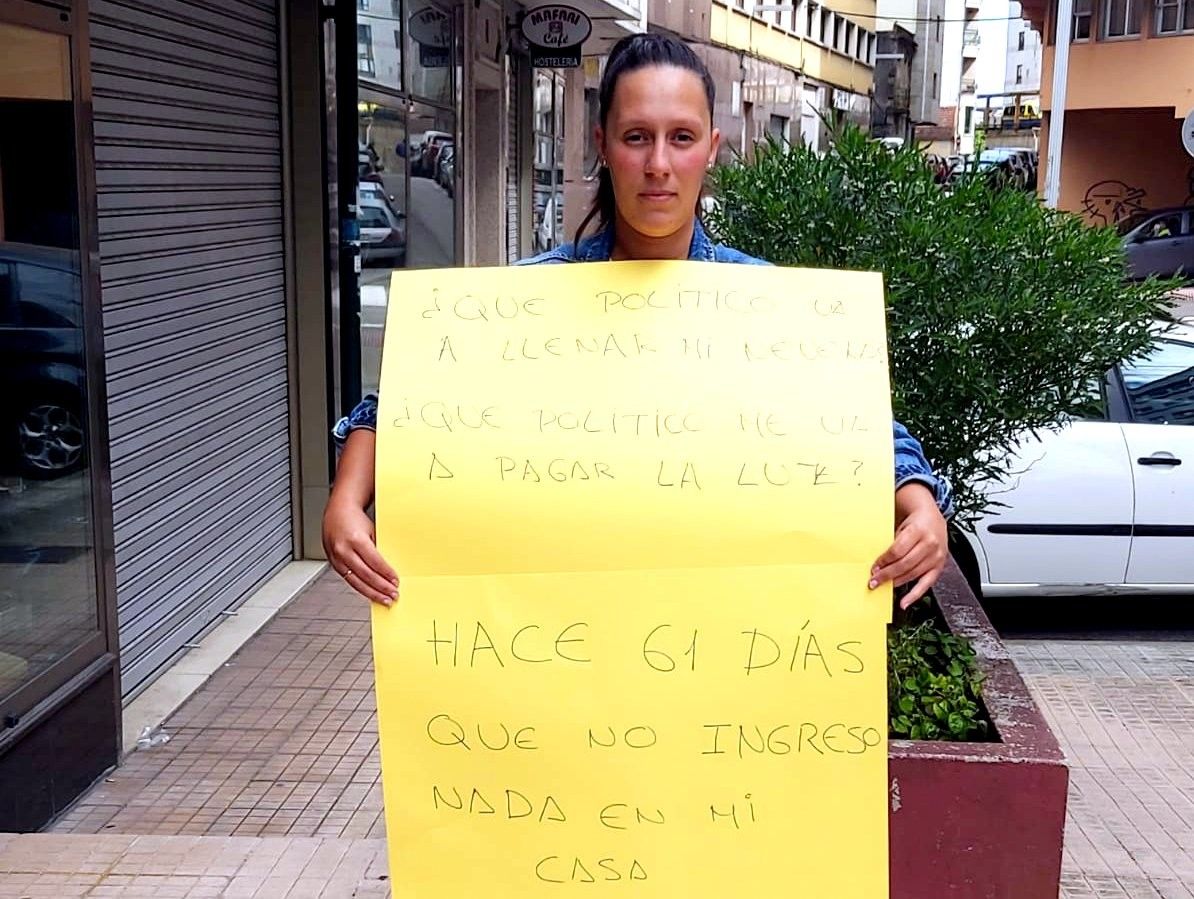 MAFARI
Café
HOSTELERIA
¿QUE POLÍTICO VA
A LLENAR MI NEVERA?
¿QUE POLITICO ME VA
A PAGAR LA LUZ?
HACE 61 DÍAS
QUE NO INGRESO
NADA EN MI
CASA